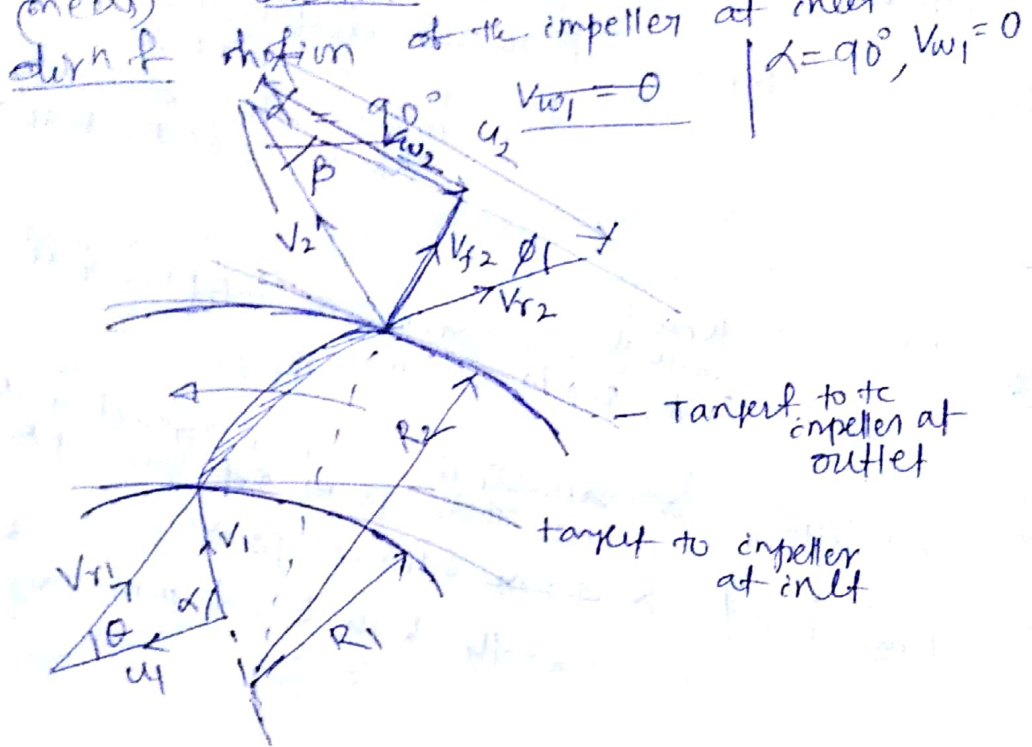 (meas)
dirn of motion of the impeller at inlet
α=90°, Vw1=0
α = 90°
Vw1 = 0
Vw2
u2
β
V2
Vf2
φ
Vr2
R2
Tangent to te
impeller at
outlet
tanget to impeller
at inlt
V1
Vr1
α
θ
u1
R1